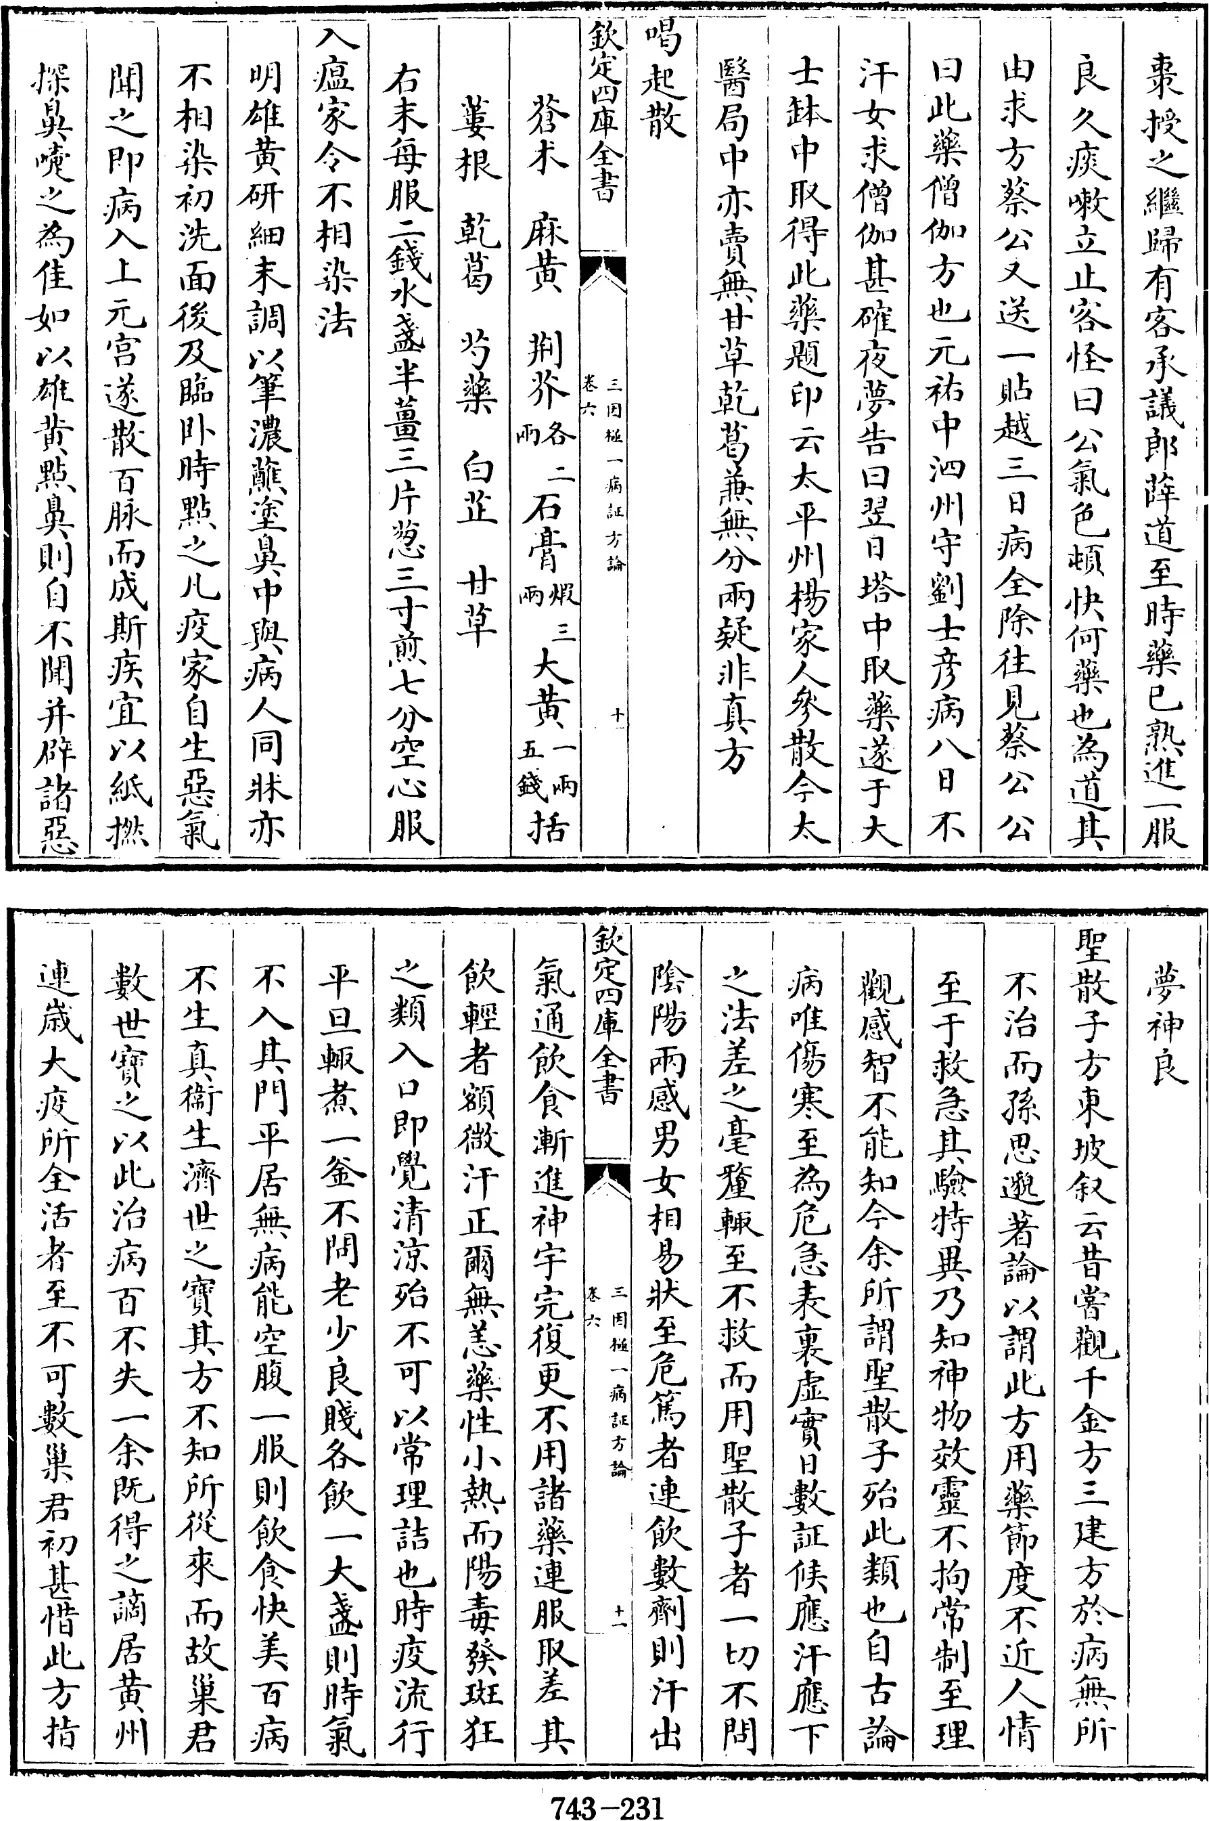 棗授之繼歸有客承議郎薛道至時藥已熟進一服
良久痰嗽立止客怪曰公氣色頓快何藥也為道其
由求方蔡公又送一貼越三日病全除往見蔡公公
曰此藥僧伽方也元祐中泗州守劉士彦病八日不
汗女求僧伽甚確夜夢告曰翌日塔中取藥遂于大
士鉢中取得此藥題印云太平州楊家人參散今太
醫局中亦賣無甘草乾葛兼無分兩疑非真方
喝起散
欽定四庫全書
三因極一病証方論
卷六
十
蒼术　麻黄　荆芥各二兩石膏煅三兩大黄一兩五錢括
蔞根　乾葛　芍藥　白芷　甘草
右末每服二錢水盞半薑三片葱三寸煎七分空心服
入瘟家令不相染法
明雄黄研細末調以筆濃蘸塗鼻中與病人同牀亦
不相染初洗面後及臨卧時點之凡疫家自生惡氣
聞之即病入上元宫遂散百脉而成斯疾宜以紙撚
探鼻嚏之為佳如以雄黄點鼻則自不聞并辟諸惡
夢神良
聖散子方東坡叙云昔嘗觀千金方三建方於病無所
不治而孫思邈著論以謂此方用藥節度不近人情
至于救急其驗特異乃知神物效靈不拘常制至理
觀感智不能知今余所謂聖散子殆此類也自古論
病唯傷寒至為危急表裏虛實日數証候應汗應下
之法差之毫釐輙至不救而用聖散子者一切不問
陰陽兩感男女相易狀至危篤者連飲數劑則汗出
欽定四庫全書
三因極一病証方論
卷六
十一
氣通飲食漸進神宇完復更不用諸藥連服取差其
飲輕者額微汗正爾無恙藥性小熱而陽毒發斑狂
之類入口即覺清涼殆不可以常理詰也時疫流行
平旦輙煮一釜不問老少良賤各飲一大盞則時氣
不入其門平居無病能空腹一服則飲食快美百病
不生真衛生濟世之寶其方不知所從來而故巢君
數世寶之以此治病百不失一余既得之謫居黄州
連嵗大疫所全活者至不可數巢君初甚惜此方指
743-231